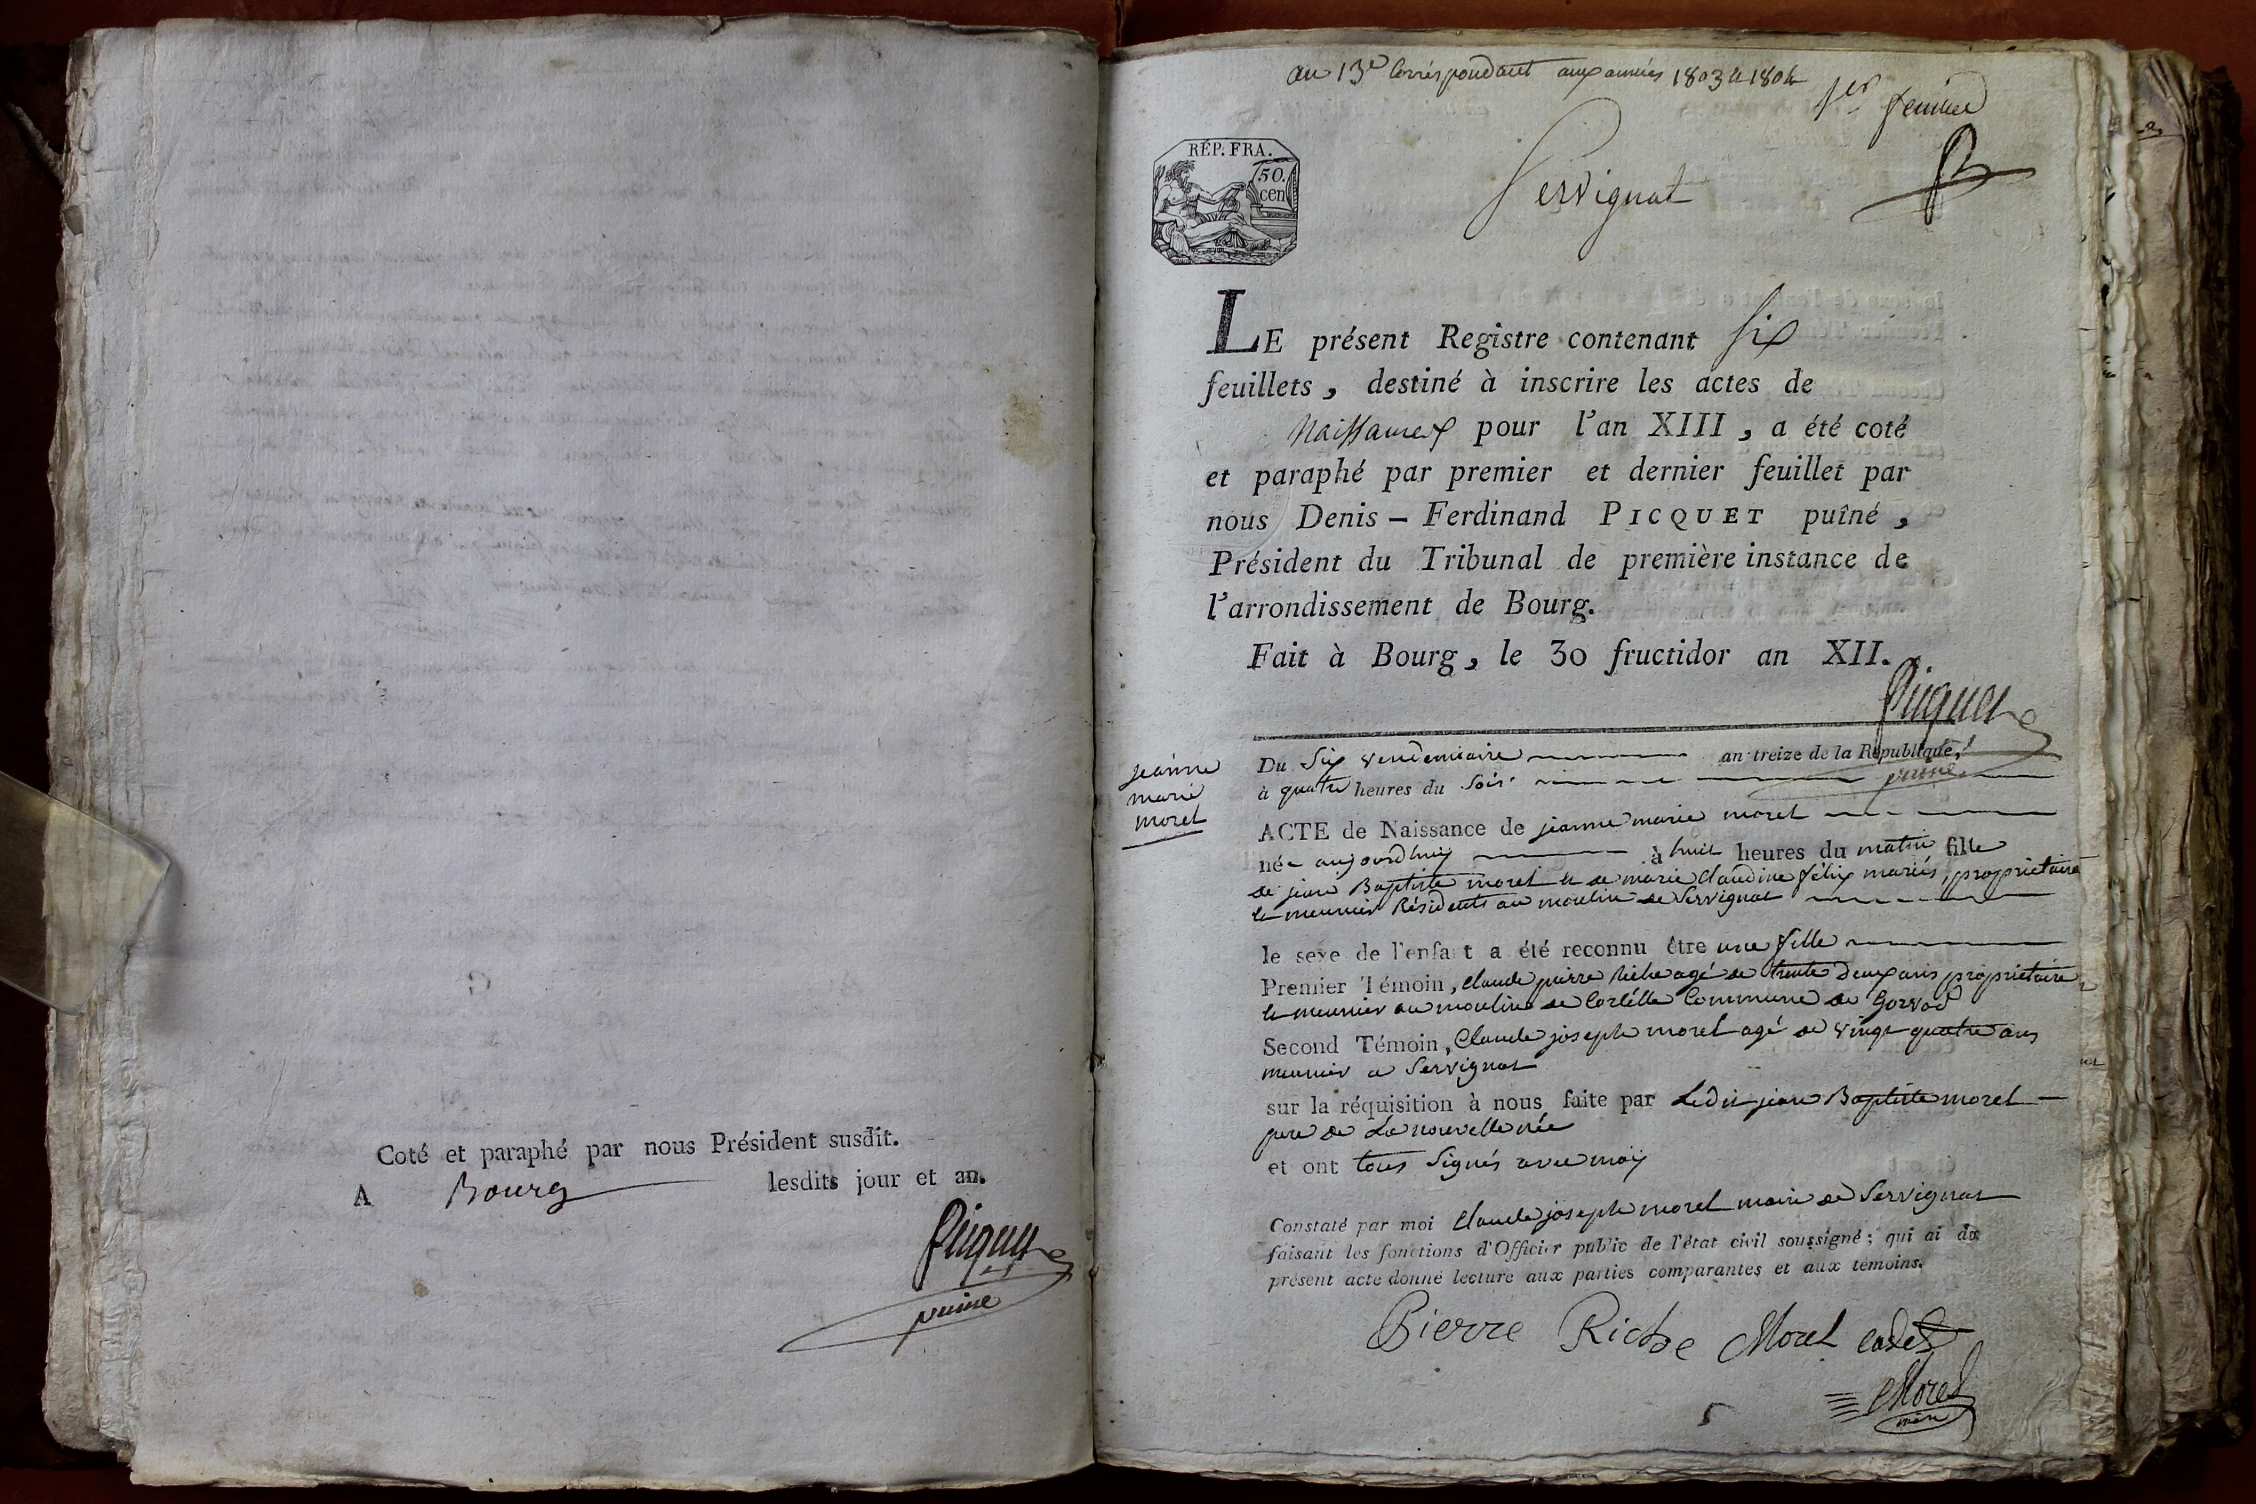 Coté et paraphé par nous Président susdit.
A Bourg lesdits jour et an.
Picquet
puiné
an 13e Correspondant aux années 1803 et 1804
1er feuillet
RÉP. FRA.
50.
cen
Servignat
LE présent Registre contenant six
feuillets, destiné à inscrire les actes de
Naissances pour l'an XIII, a été coté
et paraphé par premier et dernier feuillet par
nous Denis - Ferdinand PICQUET puîné,
Président du Tribunal de première instance de
l'arrondissement de Bourg.
Fait à Bourg, le 30 fructidor an XII.
Picquet
puiné
jeanne
marie
morel
Du Six vendemiaire an treize de la République,
à quatre heures du Soir
ACTE de Naissance de jeanne marie morel
née aujourdhuy à huit heures du matin fille
de jean Baptiste morel et de marie Claudine félix mariés, proprietaire
et meunier Résidents au moulin de Servignat
le sexe de l'enfant a été reconnu être une fille
Premier Témoin, Claude pierre Riche agé de trente deux ans proprietaire
et meunier au moulin de Corcelle Commune de Gorvod
Second Témoin, Claude joseph morel agé de vingt quatre ans
meunier a Servignat
sur la réquisition à nous faite par Ledit jean Baptiste morel
pere de La nouvelle née
et ont tous Signés avec moy
Constaté par moi Claude joseph morel maire de Servignat
faisant les fonctions d'Officier public de l'état civil soussigné; qui ai du
présent acte donné lecture aux parties comparantes et aux témoins.
Pierre Riche Morel cadet
Morel